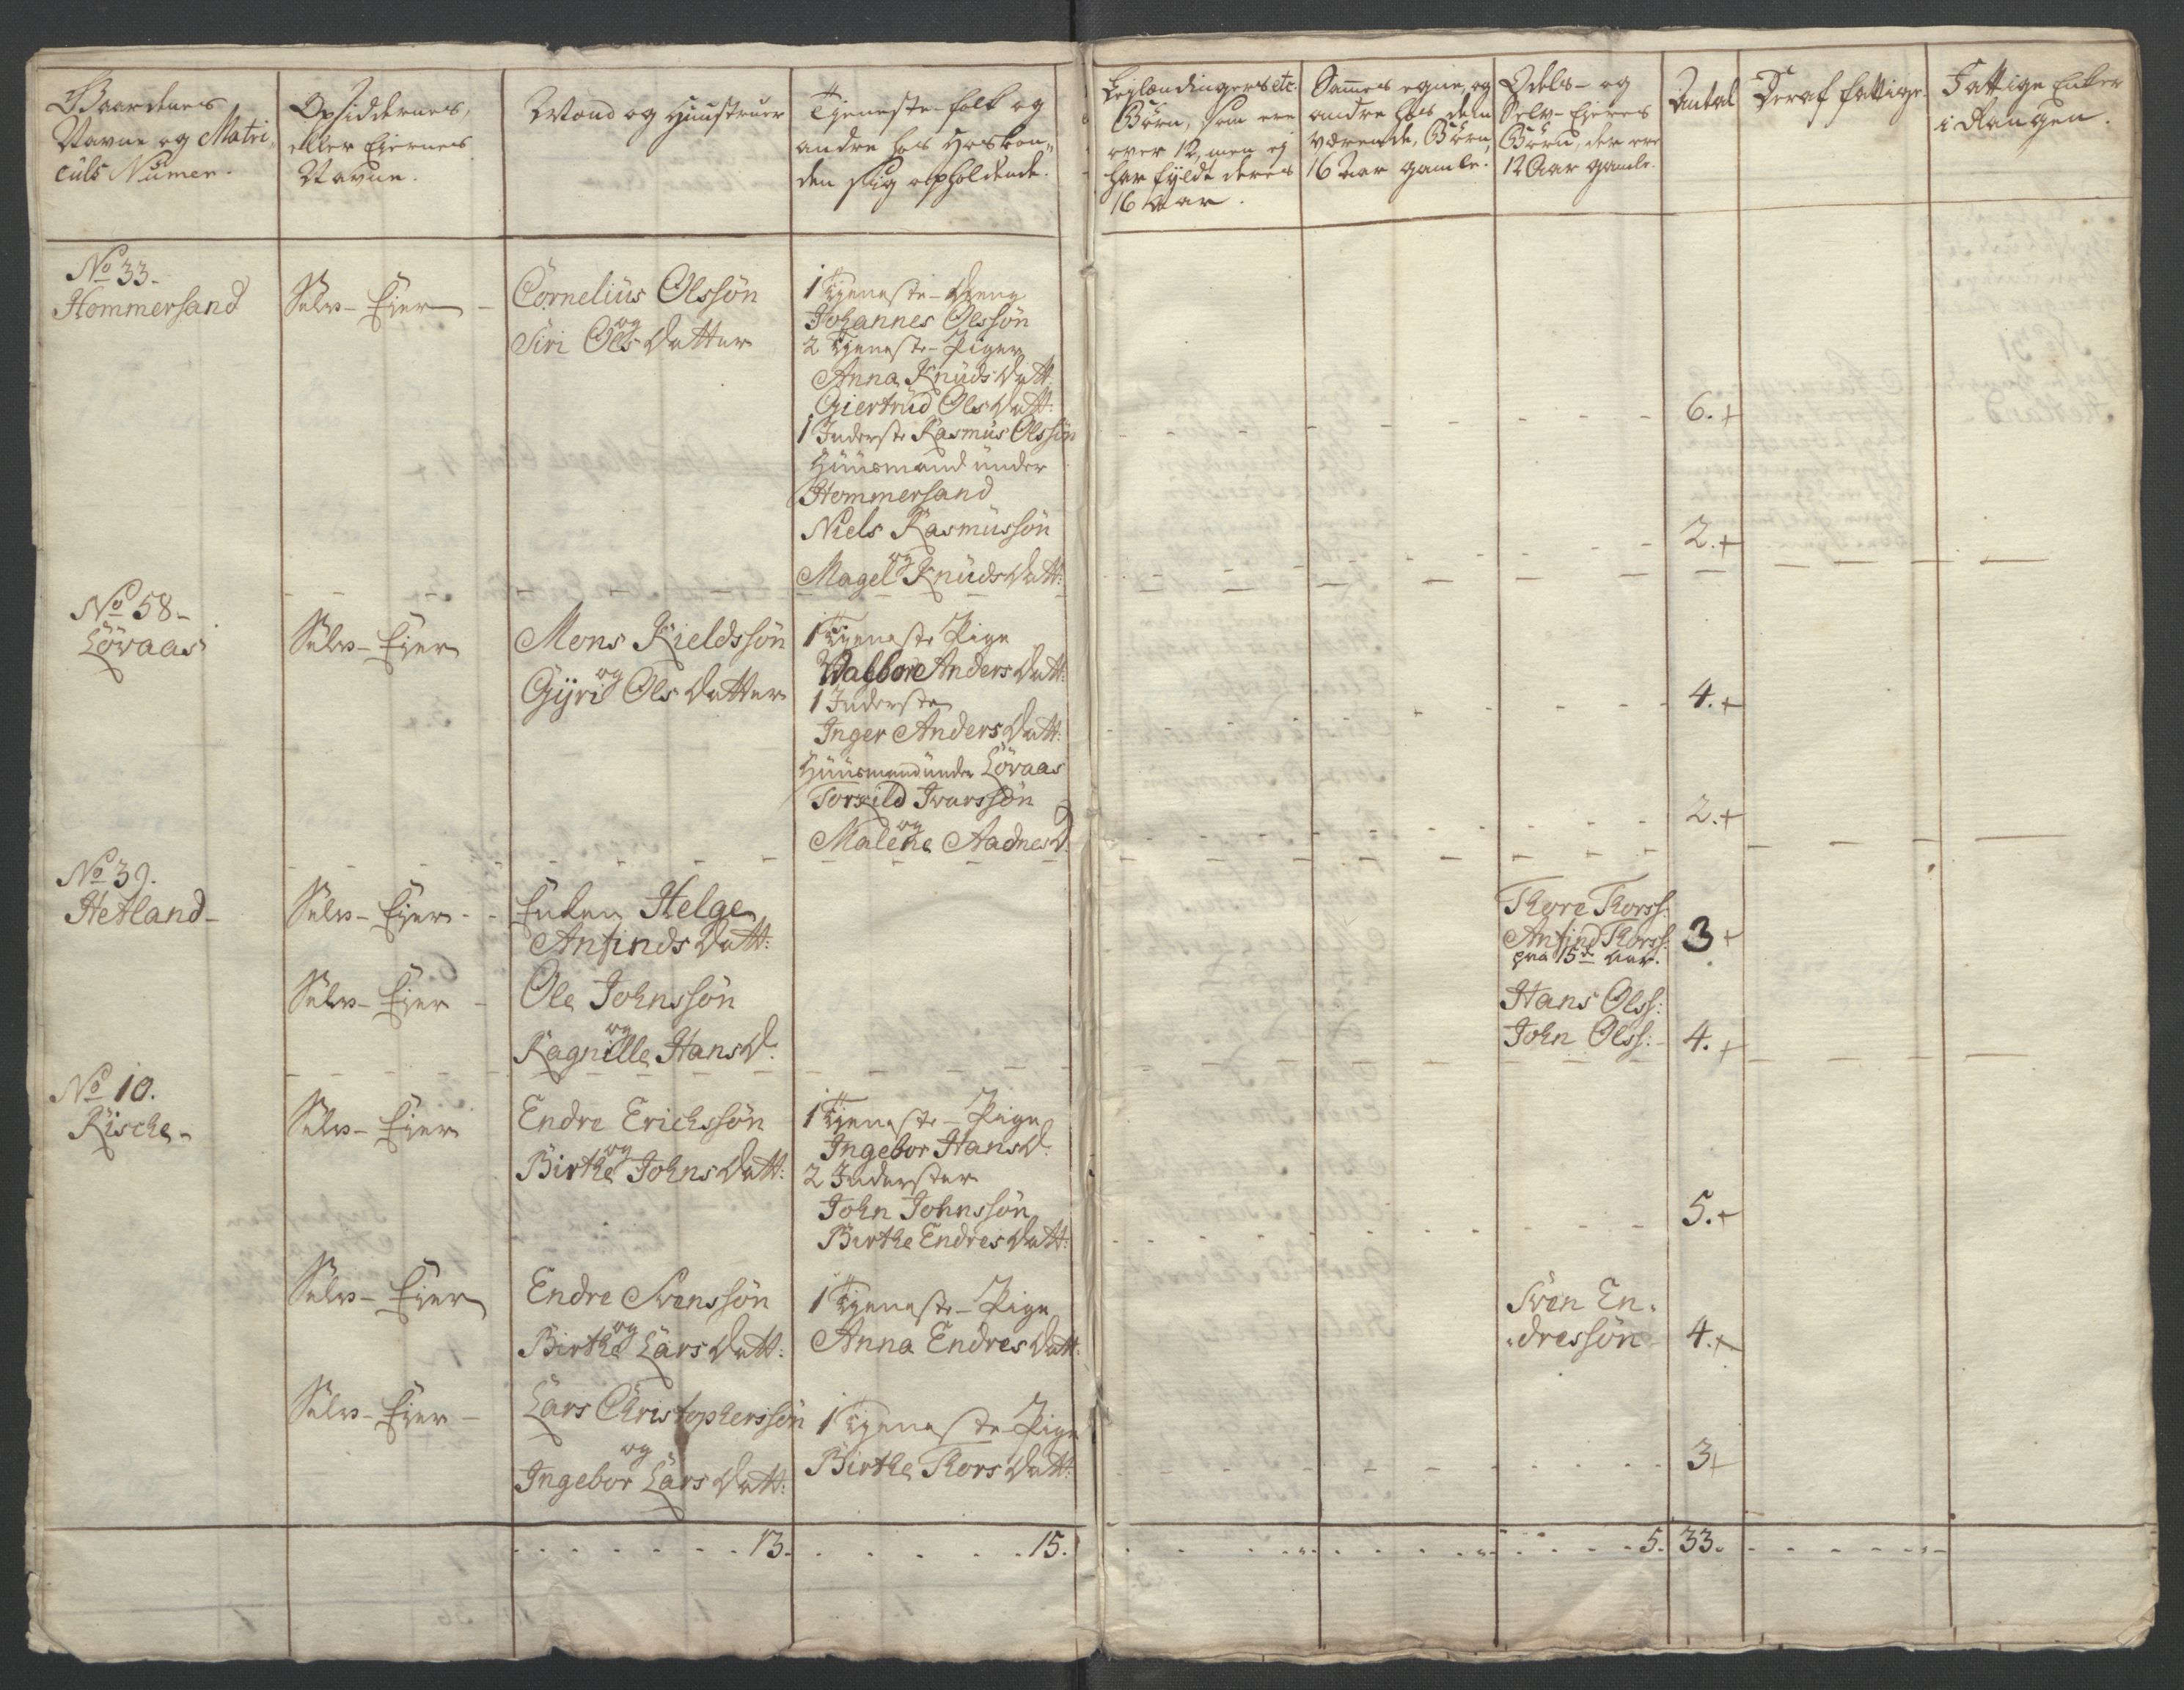 Gaardenes
Navne og Matri-
culs Numer.
Opsiddernes,
eller Ejernes
Navne.
Mænd og Hunstruer
Tjeneste-folk og
andre hos Hosbon-
den sig opholdende.
Leylændingers etc.
Börn, som ere
over 12, men ej
har fyldt deres
16 Aar.
Sammes egne, og
andre hos dem
værende, Börn
16 Aar gamle.
Odels- og
Selv-Ejeres
Börn, der ere
12 Aar gamle.
Antal
Deraf fattige.
Fattige Enker
i Rangen.
No 33.
Hommersand
Selv-Ejer
Cornelius Olssön
og
Siri Olsdatter
1 Tjeneste-dreng
Johannes Olssön
2 Tjeneste-Piger
Anna Knudsdatt:
Giertrud Olsdatt:
1 Inderste Rasmus Olssön
6.+
Huusmand under
Hommersand
Niels Rasmussön
og
Magel Knudsdatt:
2.+
No 58-
Lövaas
Selv-Ejer
Mons Kieldssön
og
Gyri Olsdatter
1 Tjeneste Pige
Valbore Andersdatt:
1 Inderste
Inger Andersdatt:
4.+
Huusmand under Lövaas
Torkild Ivarssön
og
Malene Aadnesd.
2.+
No 39.
Hetland-
Selv-Ejer
Enken Helge
Anfindsdatt:
Thore Thorss:
Anfind Thorss:
paa 15de Aar.
3+
Selv-Ejer
Ole Johnssön
og
Ragnille Hansd.
Hans Olss:
John Olss:
4.+
No 10.
Rische-
Selv-Ejer
Endre Erichssön
og
Birthe Johnsdatt:
1 Tjeneste-Pige
Ingebor Hansd.
2 Inderster
John Johnssön
Birthe Endresdatt:
5.+
Selv-Ejer
Endre Svenssön
og
Birthe Larsdatt:
1 Tjeneste-Pige
Anna Endresdatt:
Sven En-
dressön
4.+
Selv-Ejer-
Lars Christopherssön
og
Ingebor Larsdatt:
1 Tjeneste-Pige
Birthe Thorsdatt:
3+
13.
15.
5.
33.